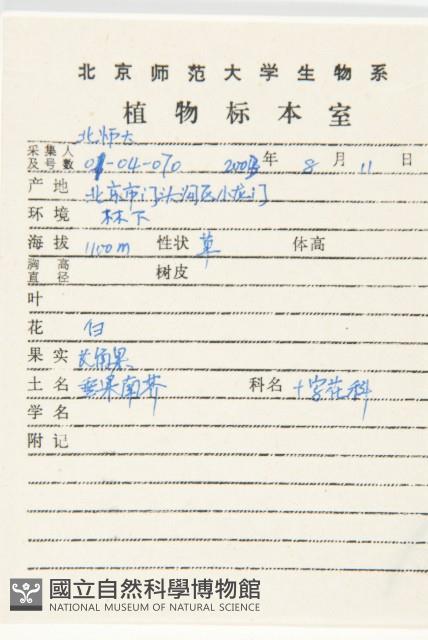 北京师范大学生物系
植物标本室
北师大
采集人及号数 01-04-070 2003年 8月 11日
产地 北京市门头沟区小龙门
环境 林下
海拔 1100m 性状 草 体高
胸高直径 树皮
叶
花 白
果实 长角果
土名 垂果南芥 科名 十字花科
学名
附记
國立自然科學博物館
NATIONAL MUSEUM OF NATURAL SCIENCE